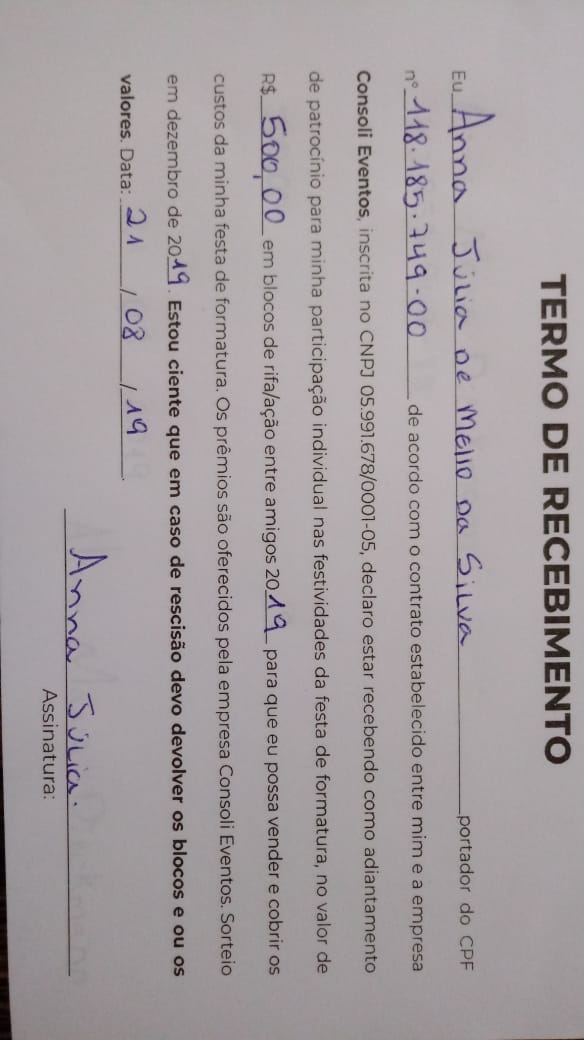 TERMO DE RECEBIMENTO
Eu Anna Júlia de Mello da Silva portador do CPF
nº 118.185.749-00 de acordo com o contrato estabelecido entre mim e a empresa
Consoli Eventos, inscrita no CNPJ 05.991.678/0001-05, declaro estar recebendo como adiantamento
de patrocínio para minha participação individual nas festividades da festa de formatura, no valor de
R$ 500,00 em blocos de rifa/ação entre amigos 2019 para que eu possa vender e cobrir os
custos da minha festa de formatura. Os prêmios são oferecidos pela empresa Consoli Eventos. Sorteio
em dezembro de 2019. Estou ciente que em caso de rescisão devo devolver os blocos e ou os
valores. Data: 21 / 08 / 19.
Anna Júlia.
Assinatura: